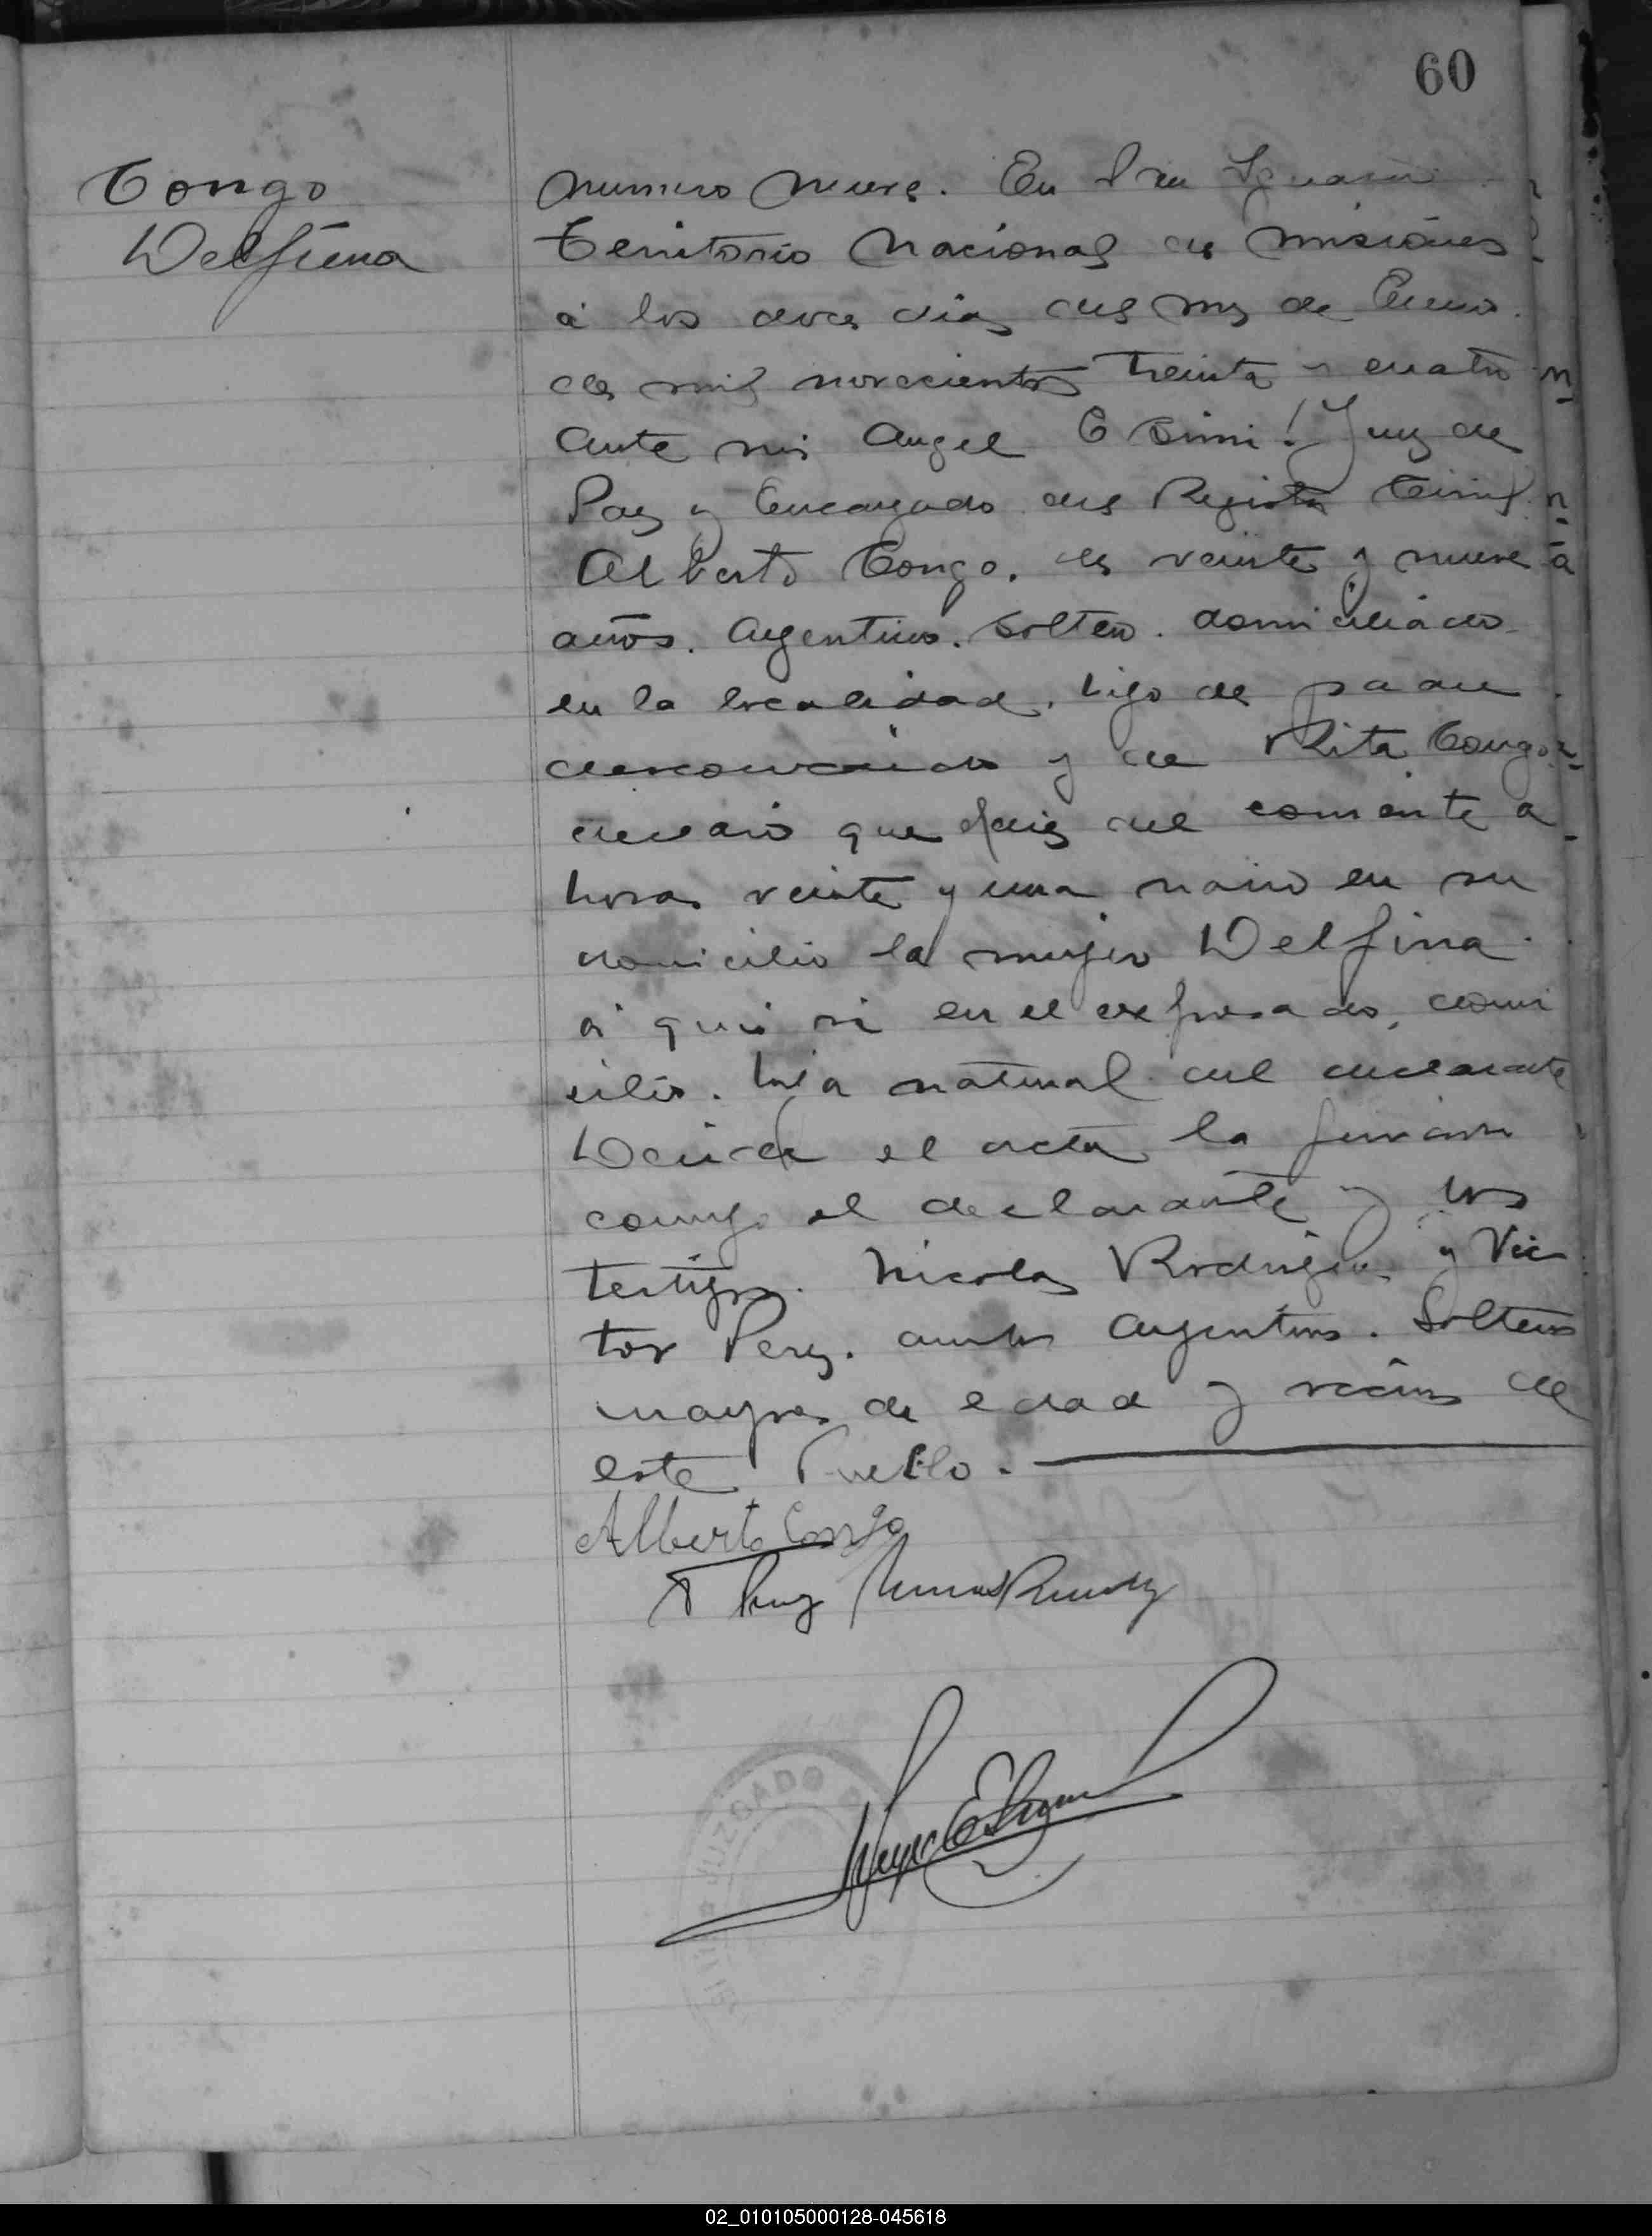 60
Congo
Delfina
numero nueve. En San Ignacio
Territorio Nacional de Misiones
á los doce dias del mes de Enero
de mil novecientos treinta y cuatro
ante mi Angel E Juez de
Paz y Encargado del Registro Civil
Alberto Congo. de veinte y nueve
años. Argentino. soltero. domiciliado
en la localidad. hijo de padre
desconocido y de Rita Congo
declaró que el del corriente a
horas veinte y una nació en su
domicilio la mujer Delfina
á quié vi en el expresado, domi
cilio. hija natural del declarante
Leida el acta la firmaron
conmigo el declarante y los
testigos. Nicolas Rodriguez y Vic
tor Perez. ambos Argentinos. Solteros
mayores de edad y vecinos de
este Pueblo.
Alberto Congo
JUZGADO
02_010105000128-045618